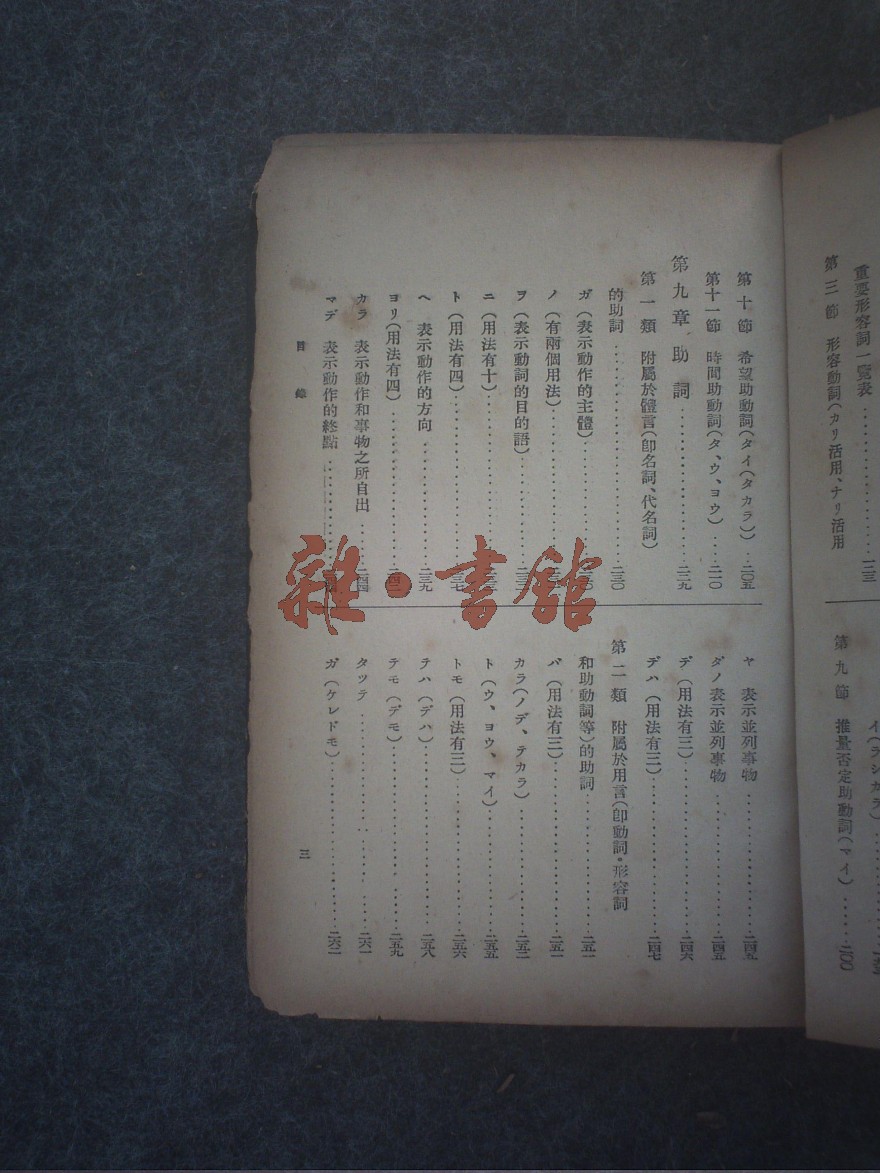 重要形容詞一覽表
第三節 形容動詞(カリ活用、ナリ活用
イ(ラシカラ)
第九節 推量否定助動詞(マイ)……二〇〇
第十節 希望助動詞(タイ(タカラ))…二〇五
第十一節 時間助動詞(タ、ウ、ヨウ)……二一〇
第九章 助詞……二二九
第一類 附屬於體言(卽名詞、代名詞)
的助詞……二三〇
ガ(表示動作的主體)
ノ(有兩個用法)
ヲ(表示動詞的目的語)
ニ(用法有十)
ト(用法有四)
ヘ 表示動作的方向……二三九
ヨリ(用法有四)
カラ 表示動作和事物之所自出……二四四
マデ 表示動作的終點
ヤ 表示並列事物……二四五
ダノ表示並列事物……二四五
デ(用法有三)……二四六
デハ(用法有三)……二四七
第二類 附屬於用言(卽動詞・形容詞
和助動詞等)的助詞……二五一
バ(用法有三)……二五一
カラ(ノデ、テカラ)……二五三
ト(ウ、ヨウ、マイ)……二五五
トモ(用法有三)……二五六
テハ(デハ)……二五八
テモ(デモ)……二五九
タツテ……二六一
ガ(ケレドモ)……二六二
目錄
三
雜·書館